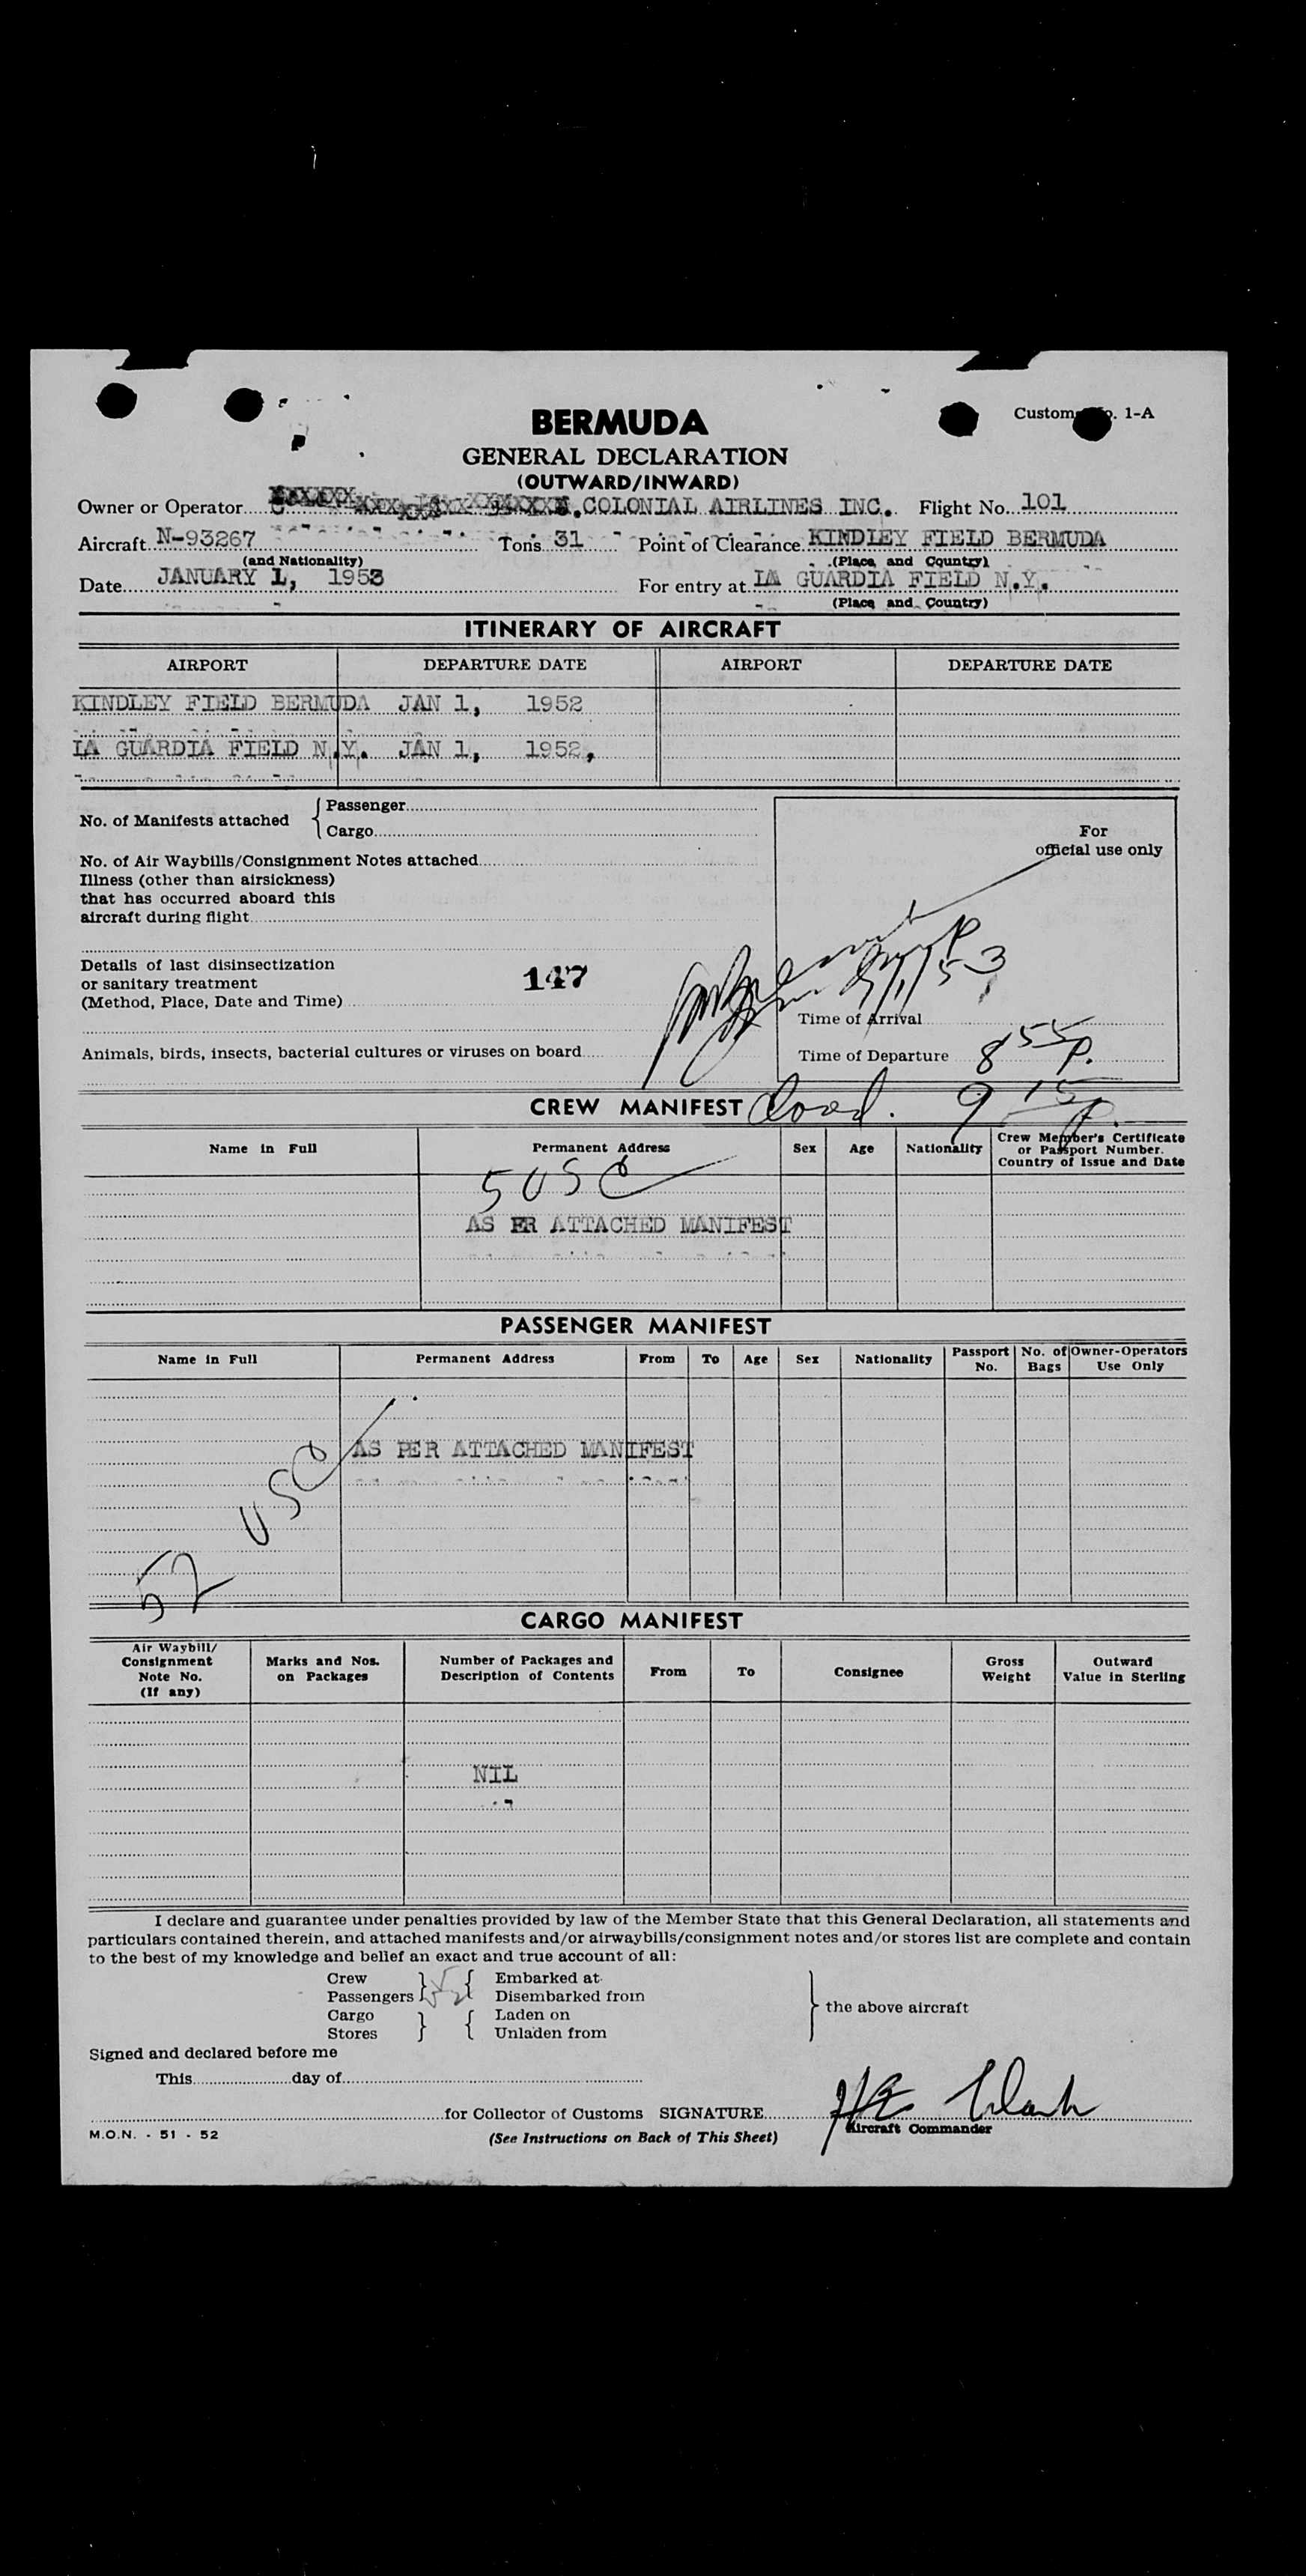 Customs No. 1-A
BERMUDA
GENERAL DECLARATION
(OUTWARD/INWARD)
Owner or Operator COLONIAL AIRLINES INC. Flight No. 101
Aircraft N-93267 Tons 31 Point of Clearance KINDLEY FIELD BERMUDA
(and Nationality) (Place and Country)
Date JANUARY 1, 1953 For entry at LA GUARDIA FIELD N.Y.
(Place and Country)
ITINERARY OF AIRCRAFT
AIRPORT DEPARTURE DATE AIRPORT DEPARTURE DATE
KINDLEY FIELD BERMUDA JAN 1, 1952
LA GUARDIA FIELD N.Y. JAN 1, 1952,
No. of Manifests attached { Passenger
Cargo
For
official use only
No. of Air Waybills/Consignment Notes attached
Illness (other than airsickness)
that has occurred aboard this
aircraft during flight
Details of last disinsectization
or sanitary treatment
(Method, Place, Date and Time)
147
1/1/53
Time of Arrival
Animals, birds, insects, bacterial cultures or viruses on board
Time of Departure 8 55 P.
CREW MANIFEST
9 15 P.
Name in Full Permanent Address Sex Age Nationality Crew Member's Certificate
or Passport Number.
Country of Issue and Date
5 USC
AS ER ATTACHED MANIFEST
PASSENGER MANIFEST
Name in Full Permanent Address From To Age Sex Nationality Passport No. No. of Bags Owner-Operators Use Only
AS PER ATTACHED MANIFEST
52 USC
CARGO MANIFEST
Air Waybill/
Consignment
Note No.
(If any)
Marks and Nos.
on Packages
Number of Packages and
Description of Contents
From To Consignee
Gross
Weight
Outward
Value in Sterling
NIL
I declare and guarantee under penalties provided by law of the Member State that this General Declaration, all statements and
particulars contained therein, and attached manifests and/or airwaybills/consignment notes and/or stores list are complete and contain
to the best of my knowledge and belief an exact and true account of all:
Crew Embarked at
Passengers 52 Disembarked from
Cargo Laden on
Stores Unladen from
the above aircraft
Signed and declared before me
This day of
for Collector of Customs SIGNATURE
Aircraft Commander
M.O.N. - 51 - 52
(See Instructions on Back of This Sheet)